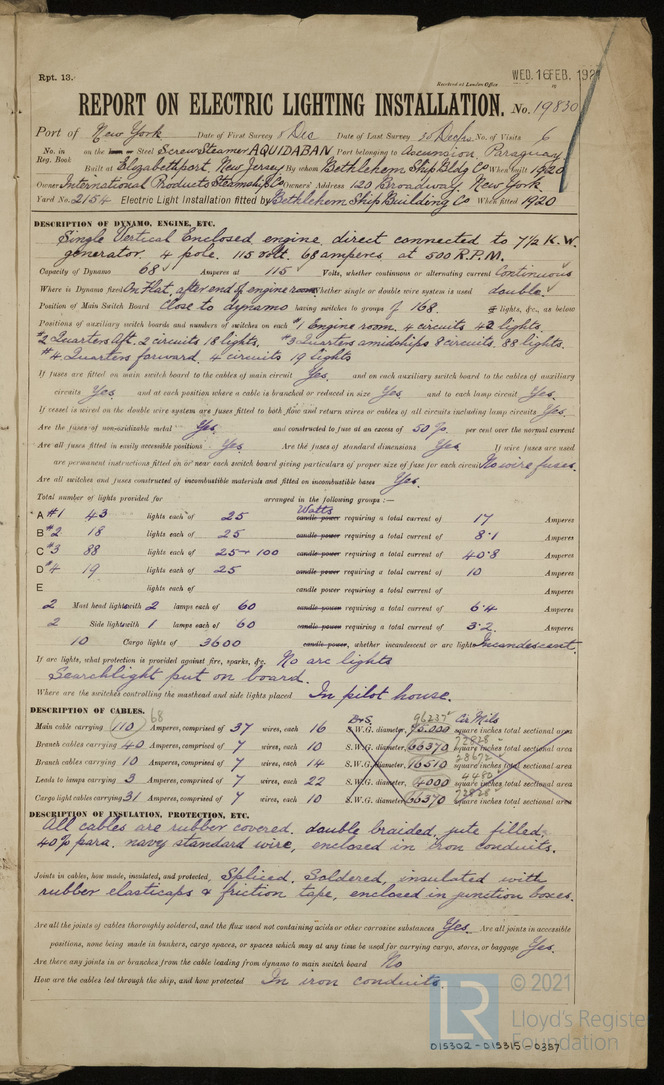 Rpt. 13.
Received at London Office
WED. 16 FEB. 192
REPORT ON ELECTRIC LIGHTING INSTALLATION. No. 19830
Port of New York Date of First Survey 8 Dec Date of Last Survey Dec No. of Visits 6
No. in Reg. Book on the Steel Screw Steamer AQUIDABAN Port belonging to Ascunsion, Paraguay.
Built at Elizabethport, New Jersey By whom Bethlehem Ship Bldg Co When built 1920
Owners International Products Steamship Co Owners' Address 120 Broadway, New York
Yard No. 2154 Electric Light Installation fitted by Bethlehem Ship Building Co When fitted 1920
DESCRIPTION OF DYNAMO, ENGINE, ETC.
Single Vertical Enclosed engine, direct connected to 7½ K.W.
generator. 4 pole. 115 volt. 68 amperes at 500 R.P.M.
Capacity of Dynamo 68 Amperes at 115 Volts, whether continuous or alternating current Continuous
Where is Dynamo fixed On Flat, after end of engine room Whether single or double wire system is used double.
Position of Main Switch Board Close to dynamo having switches to groups of 168. lights, &c., as below
Positions of auxiliary switch boards and numbers of switches on each #1 Engine room. 4 circuits 42 lights.
#2 Quarters Aft. 2 circuits 18 lights. #3 Quarters amidships 8 circuits. 88 lights.
#4 Quarters forward. 4 circuits 19 lights
If fuses are fitted on main switch board to the cables of main circuit Yes. and on each auxiliary switch board to the cables of auxiliary
circuits Yes. and at each position where a cable is branched or reduced in size Yes. and to each lamp circuit Yes.
If vessel is wired on the double wire system are fuses fitted to both flow and return wires or cables of all circuits including lamp circuits Yes.
Are the fuses of non-oxidizable metal Yes. and constructed to fuse at an excess of 50% per cent over the normal current
Are all fuses fitted in easily accessible positions Yes. Are the fuses of standard dimensions Yes. If wire fuses are used
are permanent instructions fitted on or near each switch board giving particulars of proper size of fuse for each circuit No wire fuses.
Are all switches and fuses constructed of incombustible materials and fitted on incombustible bases Yes.
Total number of lights provided for arranged in the following groups :—
A #1 43 lights each of 25 Watts candle power requiring a total current of 17 Amperes
B #2 18 lights each of 25 candle power requiring a total current of 8.1 Amperes
C #3 88 lights each of 25 - 100 candle power requiring a total current of 40.8 Amperes
D #4 19 lights each of 25 candle power requiring a total current of 10 Amperes
E lights each of candle power requiring a total current of Amperes
2 Mast head lights with 2 lamps each of 60 candle power requiring a total current of 6.4 Amperes
2 Side lights with 1 lamps each of 60 candle power requiring a total current of 3.2 Amperes
10 Cargo lights of 3600 candle power, whether incandescent or arc lights Incandescent.
If arc lights, what protection is provided against fire, sparks, &c. No arc lights
Searchlight put on board.
Where are the switches controlling the masthead and side lights placed In pilot house.
DESCRIPTION OF CABLES. 68 B&S. 96237 Cir Mils
Main cable carrying 110 Amperes, comprised of 37 wires, each 16 S.W.G. diameter, 95.000 square inches total sectional area
72828
Branch cables carrying 40 Amperes, comprised of 7 wires, each 10 S.W.G. diameter, 66370 square inches total sectional area
28672
Branch cables carrying 10 Amperes, comprised of 7 wires, each 14 S.W.G. diameter, 16510 square inches total sectional area
4480
Leads to lamps carrying 3 Amperes, comprised of 7 wires, each 22 S.W.G. diameter, 4000 square inches total sectional area
72828
Cargo light cables carrying 31 Amperes, comprised of 7 wires, each 10 S.W.G. diameter, 66370 square inches total sectional area
DESCRIPTION OF INSULATION, PROTECTION, ETC.
All cables are rubber covered, double braided, jute filled,
40% para. navy standard wire, enclosed in iron conduits.
Joints in cables, how made, insulated, and protected, Spliced. Soldered, insulated with
rubber elasticaps & friction tape, enclosed in junction boxes.
Are all the joints of cables thoroughly soldered, and the flux used not containing acids or other corrosive substances Yes. Are all joints in accessible
positions, none being made in bunkers, cargo spaces, or spaces which may at any time be used for carrying cargo, stores, or baggage Yes.
Are there any joints in or branches from the cable leading from dynamo to main switch board No
How are the cables led through the ship, and how protected In iron conduits.
LR © 2021
Lloyd's Register
Foundation
015302-015315-0387